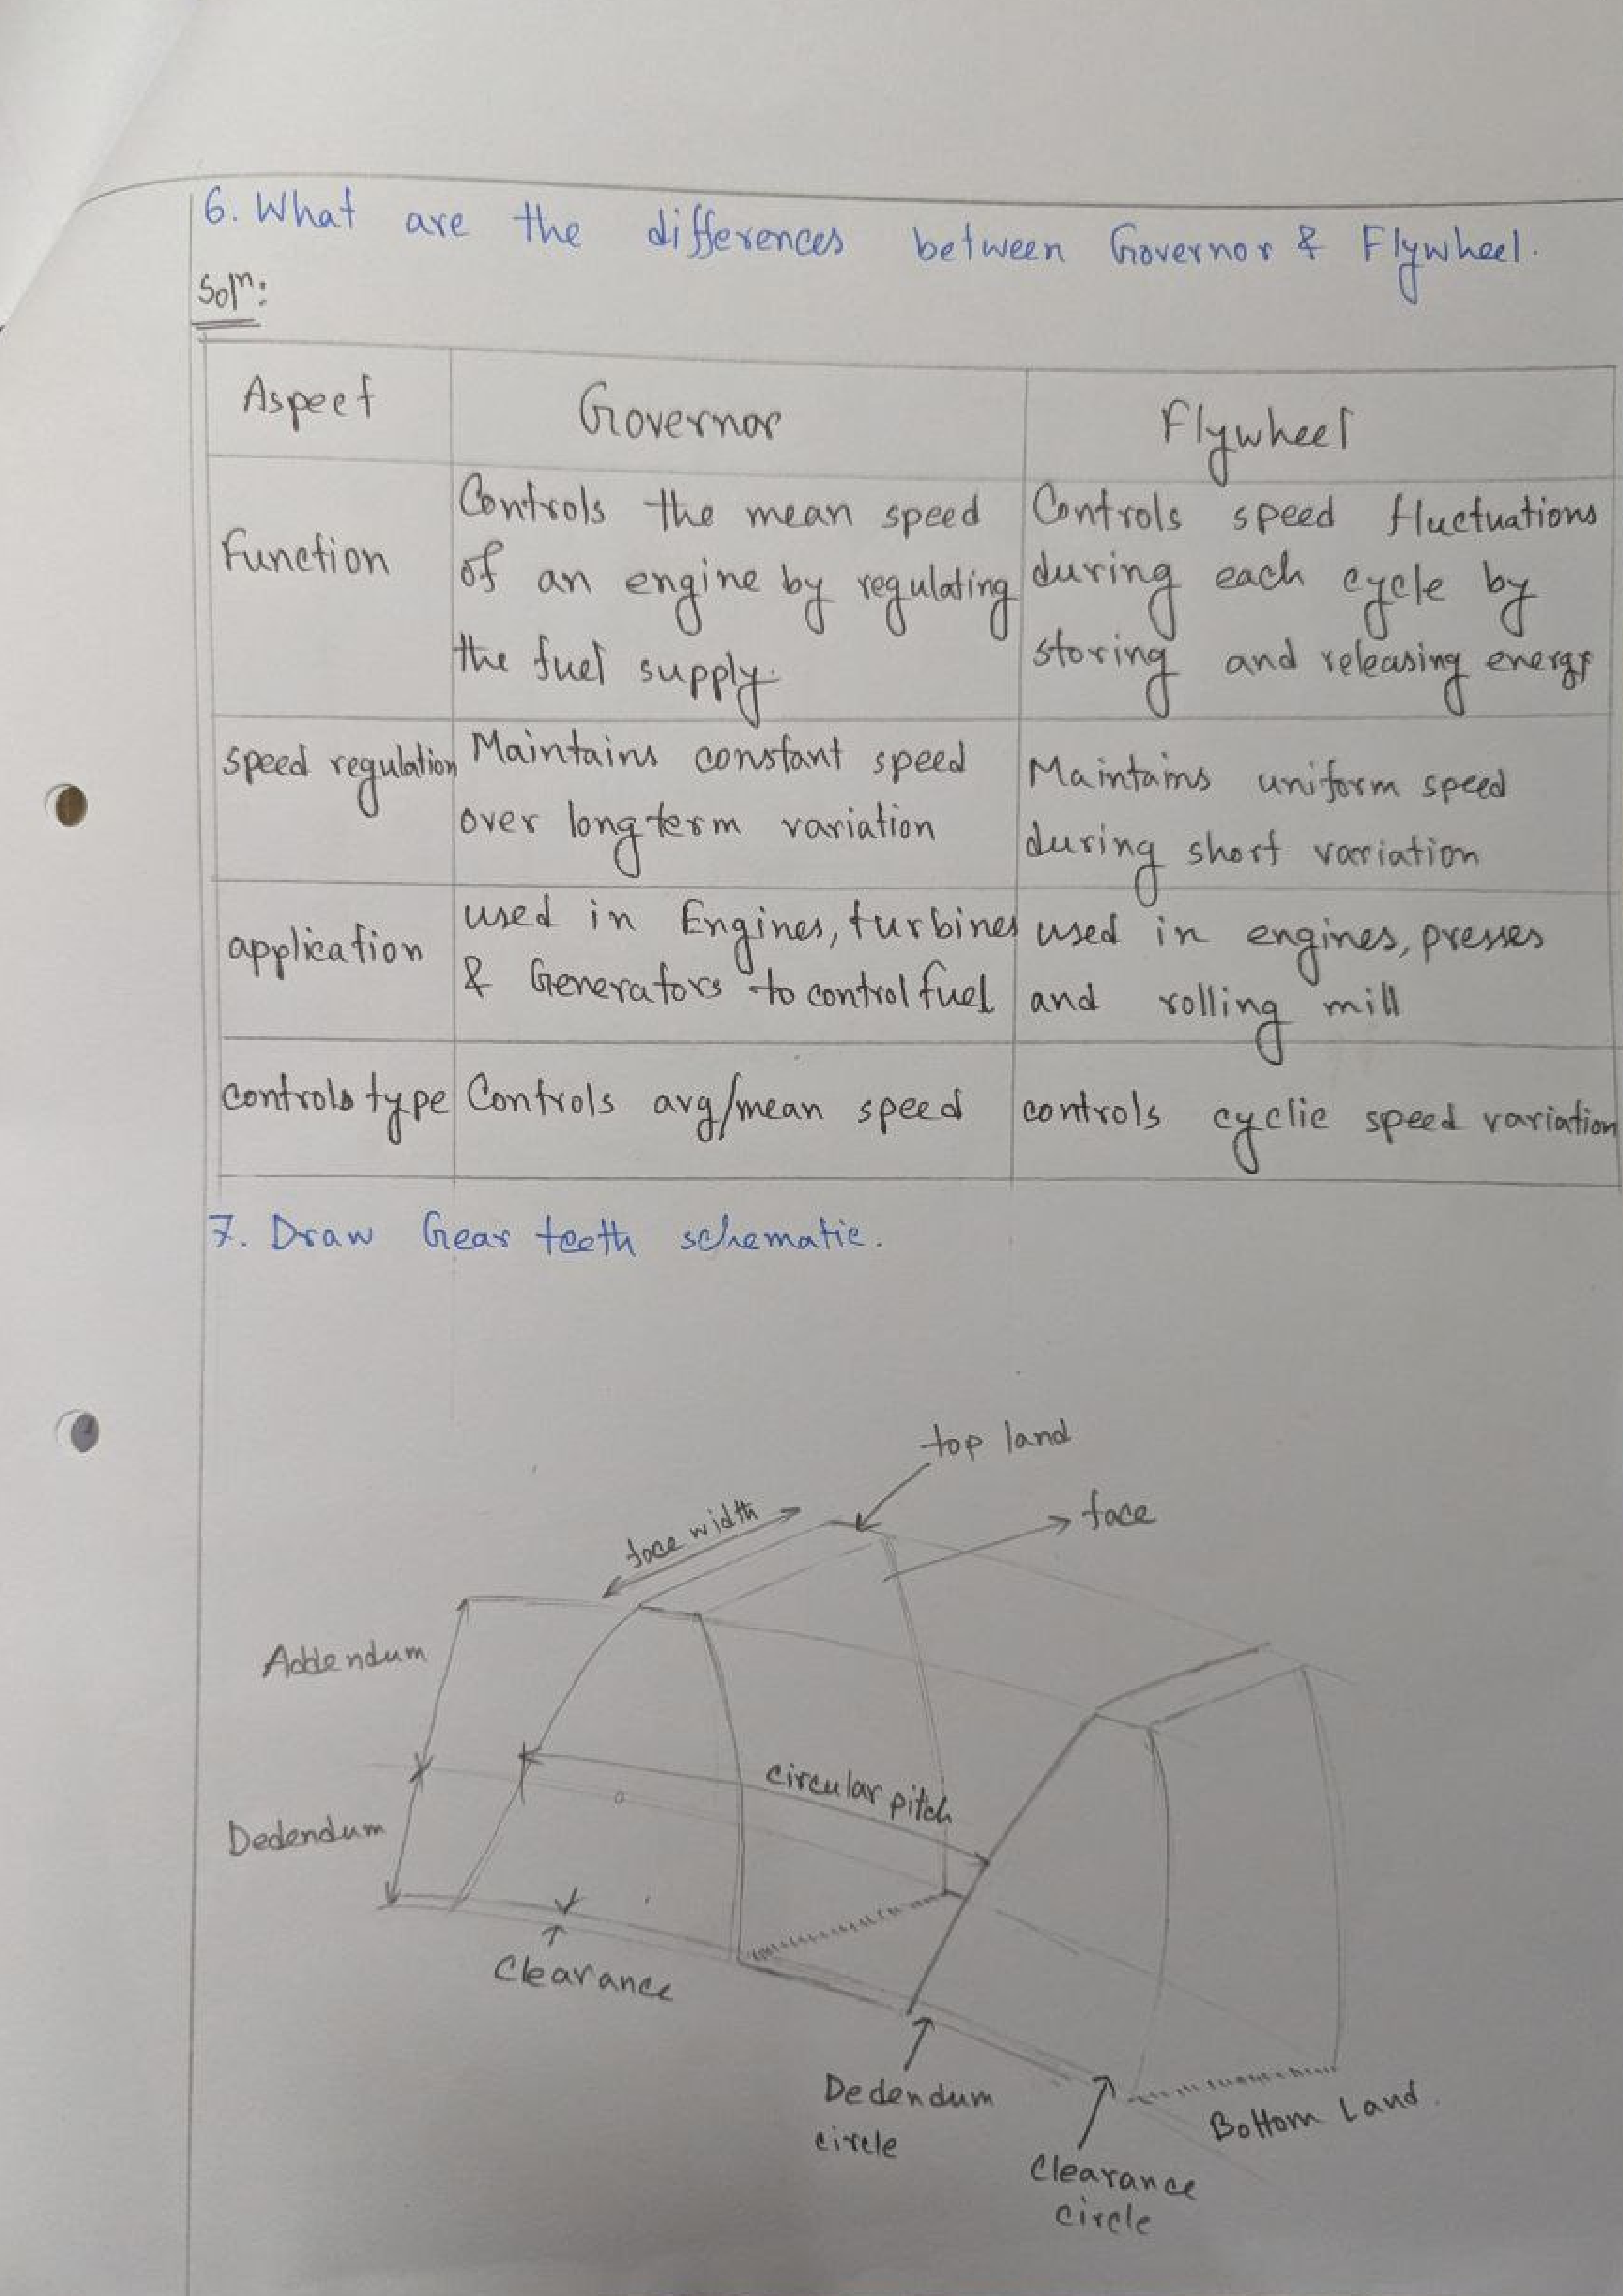 6. What are the differences between Governor & Flywheel.
Soln:
Aspect Governor Flywheel
Function
Controls the mean speed
of an engine by regulating
the fuel supply.
Controls speed fluctuations
during each cycle by
storing and releasing energy
speed regulation
Maintains constant speed
over long term variation
Maintains uniform speed
during short variation
application
used in Engines, turbines
& Generators to control fuel
used in engines, presses
and rolling mill
controls type
Controls avg/mean speed
controls cyclic speed variation
7. Draw Gear teeth schematic.
top land
face width
face
Addendum
circular pitch
Dedendum
Clearance
Dedendum
circle
Bottom Land.
Clearance
circle